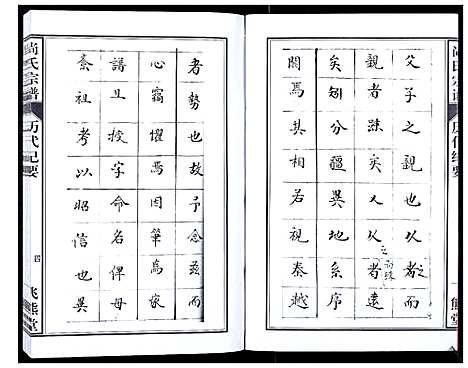 父子之親也久而久之
親者疎矣久之疎者遠
矣矧分疆異地系序
闕焉其相若視秦越
者勢也故予念茲而
心竊懼焉因筆為家
譜且授字命名俾毋
紊祖考以昭信也異
尚氏宗譜
历代纪要
四
飛熊堂